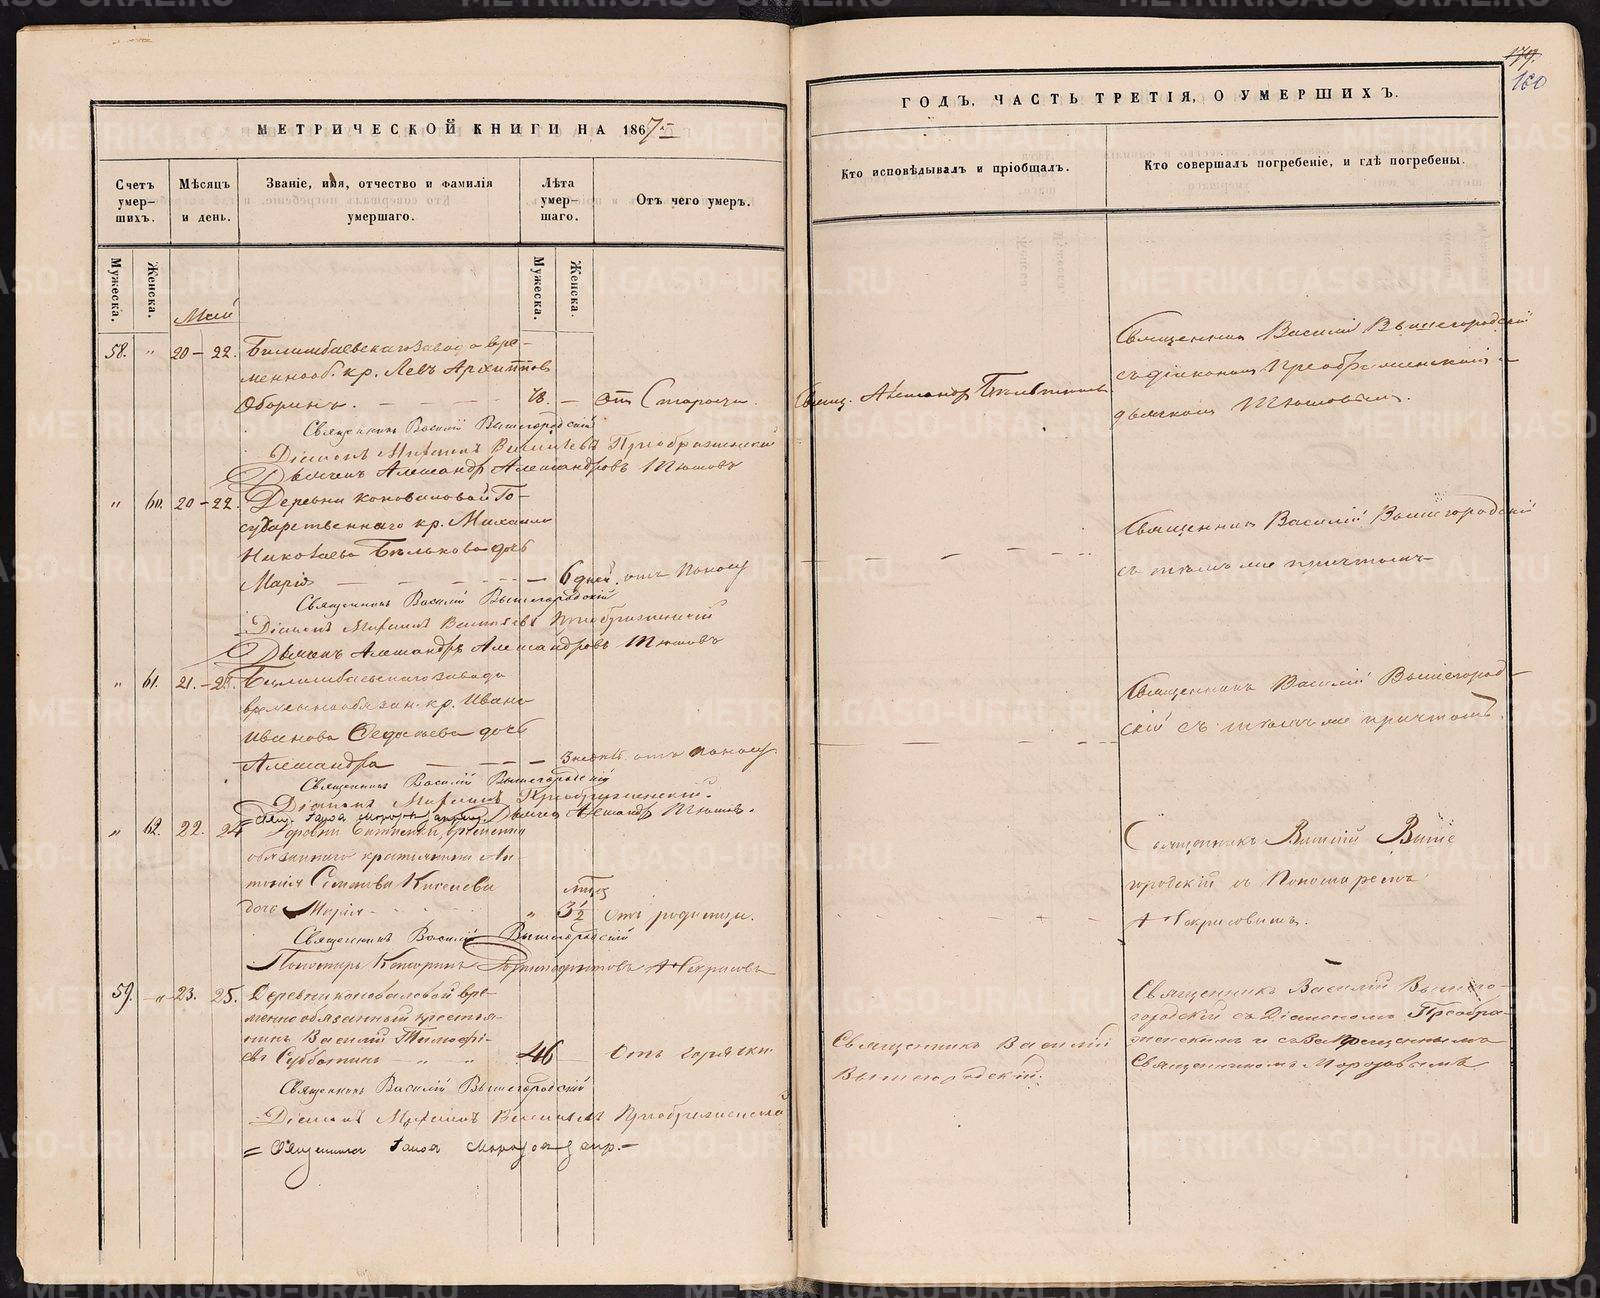 179.
160
МЕТРИЧЕСКОЙ КНИГИ НА 1867
Счетъ умер-шихъ.
Мѣсяцъ и день.
Званіе, имя, отчество и фамилія умершаго.
Лѣта умер-шаго.
Отъ чего умеръ.
Мужеска.
Женска.
Мужеска.
Женска.
Май
58. " 20 – 22. Билимбаевскаго завода вре-
меннооб. кр. Левъ Архипповъ
Оборинъ. 78. — отъ Старости.
Священникъ Василій Вышегородскій
Діаконъ Михаилъ Васильевъ Преображенскій
Дьячекъ Александръ Александровъ Тюшовъ
" 60. 20 – 22. Деревни Коноваловой Го-
сударственнаго кр. Михаила
Николаева Бѣлькова дочь
Марія 6 дней. отъ поносу
Священникъ Василій Вышегородскій
Діаконъ Михаилъ Васильевъ Преображенскій
Дьячекъ Александръ Александровъ Тюшовъ
" 61. 21. – Билимбаевскаго завода
временнообязан. кр. Ивана
Иванова дочь
Александра отъ поносу.
Священникъ Василій Вышегородскій
Діаконъ Михаилъ Преображенскій.
Дьячекъ Александръ Тюшовъ.
" 62. 22. 24 Деревни временно
обязаннаго крестьянина Ан-
тонія Киселева
дочь Марія " 3½ Отъ родимца.
Священникъ Василій Вышегородскій
Пономарь Некрасовъ
59. " 23. 25. Деревни Коноваловой вре-
менно обязанный крестья-
нинъ Василій Тимофѣ-
евъ Субботинъ " " 46 Отъ горячки
Священникъ Василій Вышегородскій
Діаконъ Михаилъ Васильевъ Преображенскій
ГОДЪ, ЧАСТЬ ТРЕТІЯ, О УМЕРШИХЪ.
Кто исповѣдывалъ и пріобщалъ.
Кто совершалъ погребеніе, и гдѣ погребены.
Священникъ Василій Вышегородскій
съ діакономъ Преображенскимъ и
дьячкомъ Тюшовымъ.
Свящ. Александръ
Священникъ Василій Вышегородскій
съ тѣмъ же причтомъ
Священникъ Василій Вышегород-
скій съ тѣмъ же причтомъ.
Священникъ Василій Выше
городскій съ Пономаремъ
Некрасовымъ.
Священникъ Василій
Вышегородскій.
Священникъ Василій Вышего-
городскій съ Діакономъ Преобра-
женскимъ и запрещеннымъ
Священникомъ Морозовымъ
METRIKI.GASO-URAL.RU